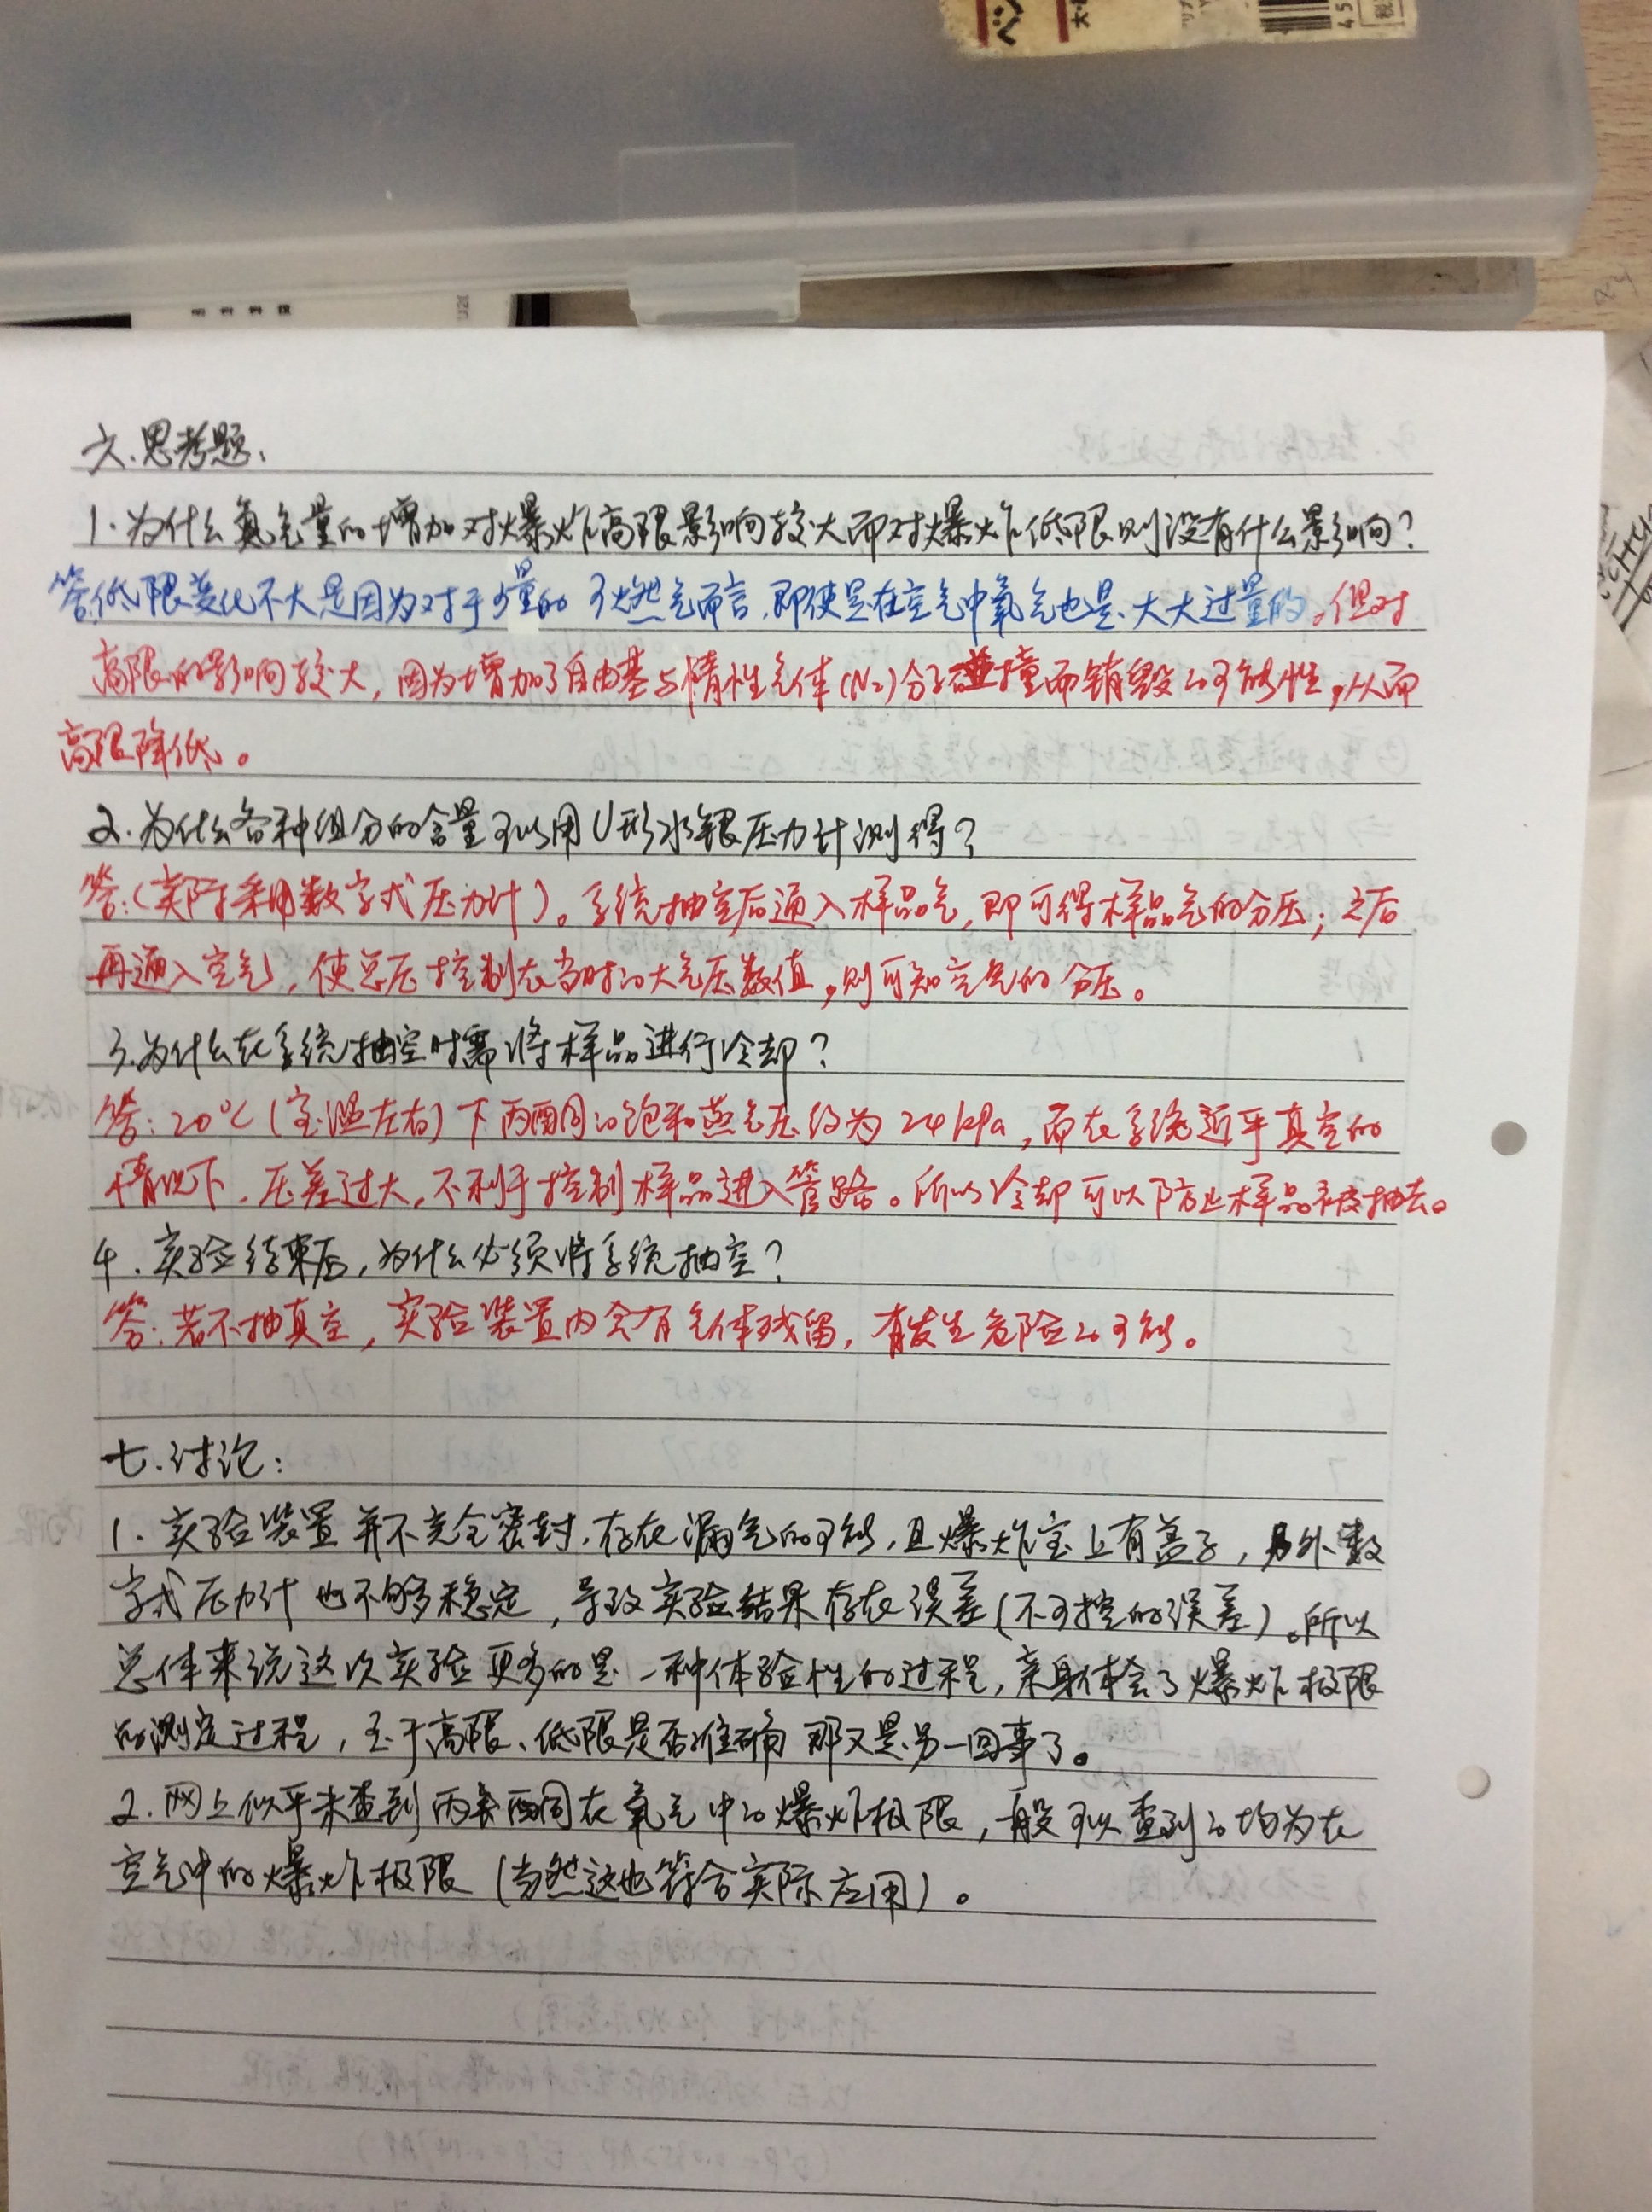 六.思考题:
1.为什么氮气量的增加对爆炸高限影响较大而对爆炸低限则没有什么影响?
答:低限变化不大是因为对于少量的可燃气而言,即使是在空气中氧气也是大大过量的。但对
高限的影响较大,因为增加了自由基与惰性气体(N₂)分子碰撞而销毁的可能性,从而
高限降低。
2.为什么各种组分的含量可以用U形水银压力计测得?
答:(实际采用数字式压力计)。系统抽空后通入样品气,即可得样品气的分压;之后
再通入空气,使总压控制在当时的大气压数值,则可知空气的分压。
3.为什么在系统抽空时需将样品进行冷却?
答:20℃(室温左右)下丙酮的饱和蒸气压约为24kPa,而在系统近乎真空的
情况下,压差过大,不利于控制样品进入管路。所以冷却可以防止样品被抽去。
4.实验结束后,为什么必须将系统抽空?
答:若不抽真空,实验装置内会有气体残留,有发生危险的可能。
七.讨论:
1.实验装置并不完全密封,存在漏气的可能,且爆炸室上有盖子,另外数
字式压力计也不够稳定,导致实验结果存在误差(不可控的误差)。所以
总体来说这次实验更多的是一种体验性的过程,亲身体会了爆炸极限
的测定过程,至于高限、低限是否准确那又是另一回事了。
2.网上似乎未查到丙酮在氧气中的爆炸极限,一般可以查到的均为在
空气中的爆炸极限(当然这也符合实际应用)。